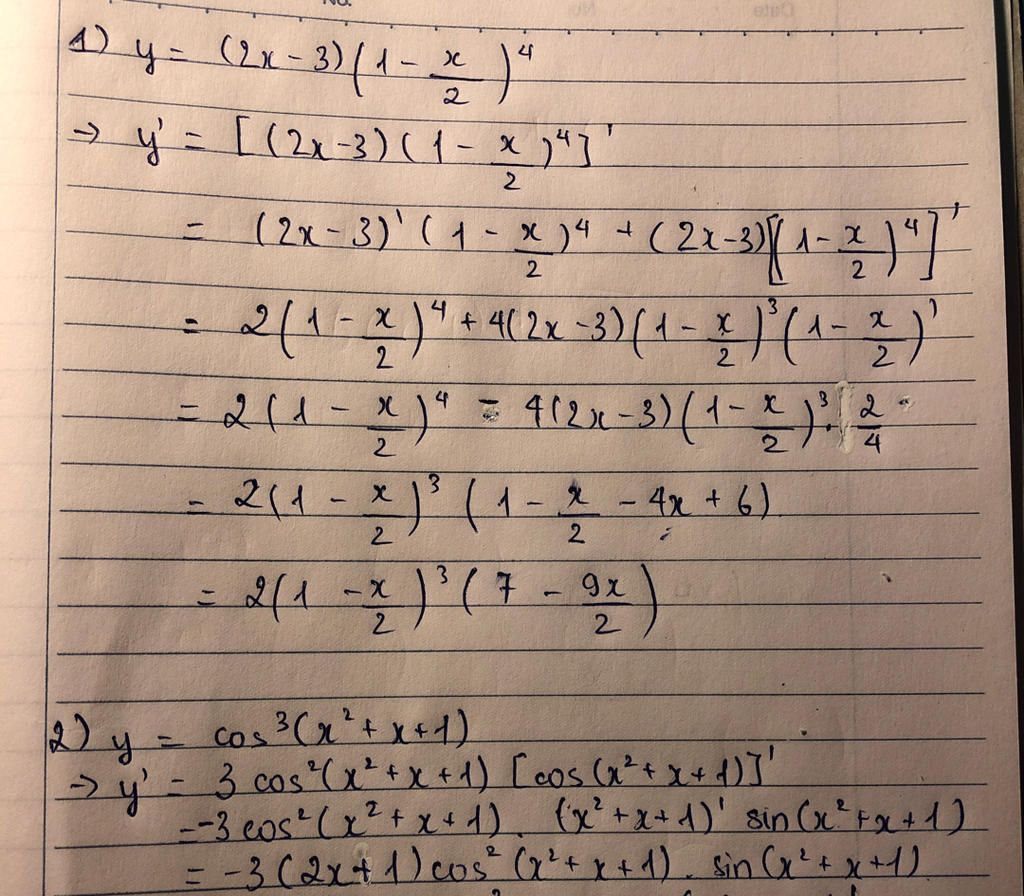 No.
1) y = (2x - 3)(1 - x/2)^4
→ y' = [(2x-3)(1 - x/2)^4]'
= (2x-3)'(1 - x/2)^4 + (2x-3)[(1 - x/2)^4]'
= 2(1 - x/2)^4 + 4(2x-3)(1 - x/2)^3(1 - x/2)'
= 2(1 - x/2)^4 - 4(2x-3)(1 - x/2)^3 . 2/4
= 2(1 - x/2)^3 (1 - x/2 - 4x + 6)
= 2(1 - x/2)^3 (7 - 9x/2)
2) y = cos^3(x^2 + x + 1)
→ y' = 3 cos^2(x^2 + x + 1) [cos(x^2 + x + 1)]'
= -3 cos^2(x^2 + x + 1) . (x^2 + x + 1)' sin(x^2 + x + 1)
= -3(2x + 1) cos^2(x^2 + x + 1) . sin(x^2 + x + 1)